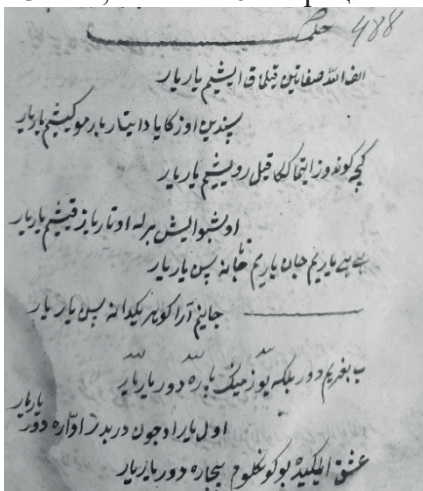 488
الف الله صفاتین قیلماق ایشیم یار یار
سیندین اوزکا یا دایتار بارموکیشیم یار یار
کیچه کوندوز ایتماککا قیل رویشیم یار یار
اوشبو ایش برله اوتار یاز قیشیم یار یار
هی هی یاریم جان یاریم جانانه سین یار یار
جانیم آرا کوهر یکدانه سین یار یار
ب بغریم دور بلکه یوز مینک پاره دور یار یار
اول یار اوچون دربدر آواره دور یار یار
عشق ایلکیده بو کونکلوم بیچاره دور یار یار